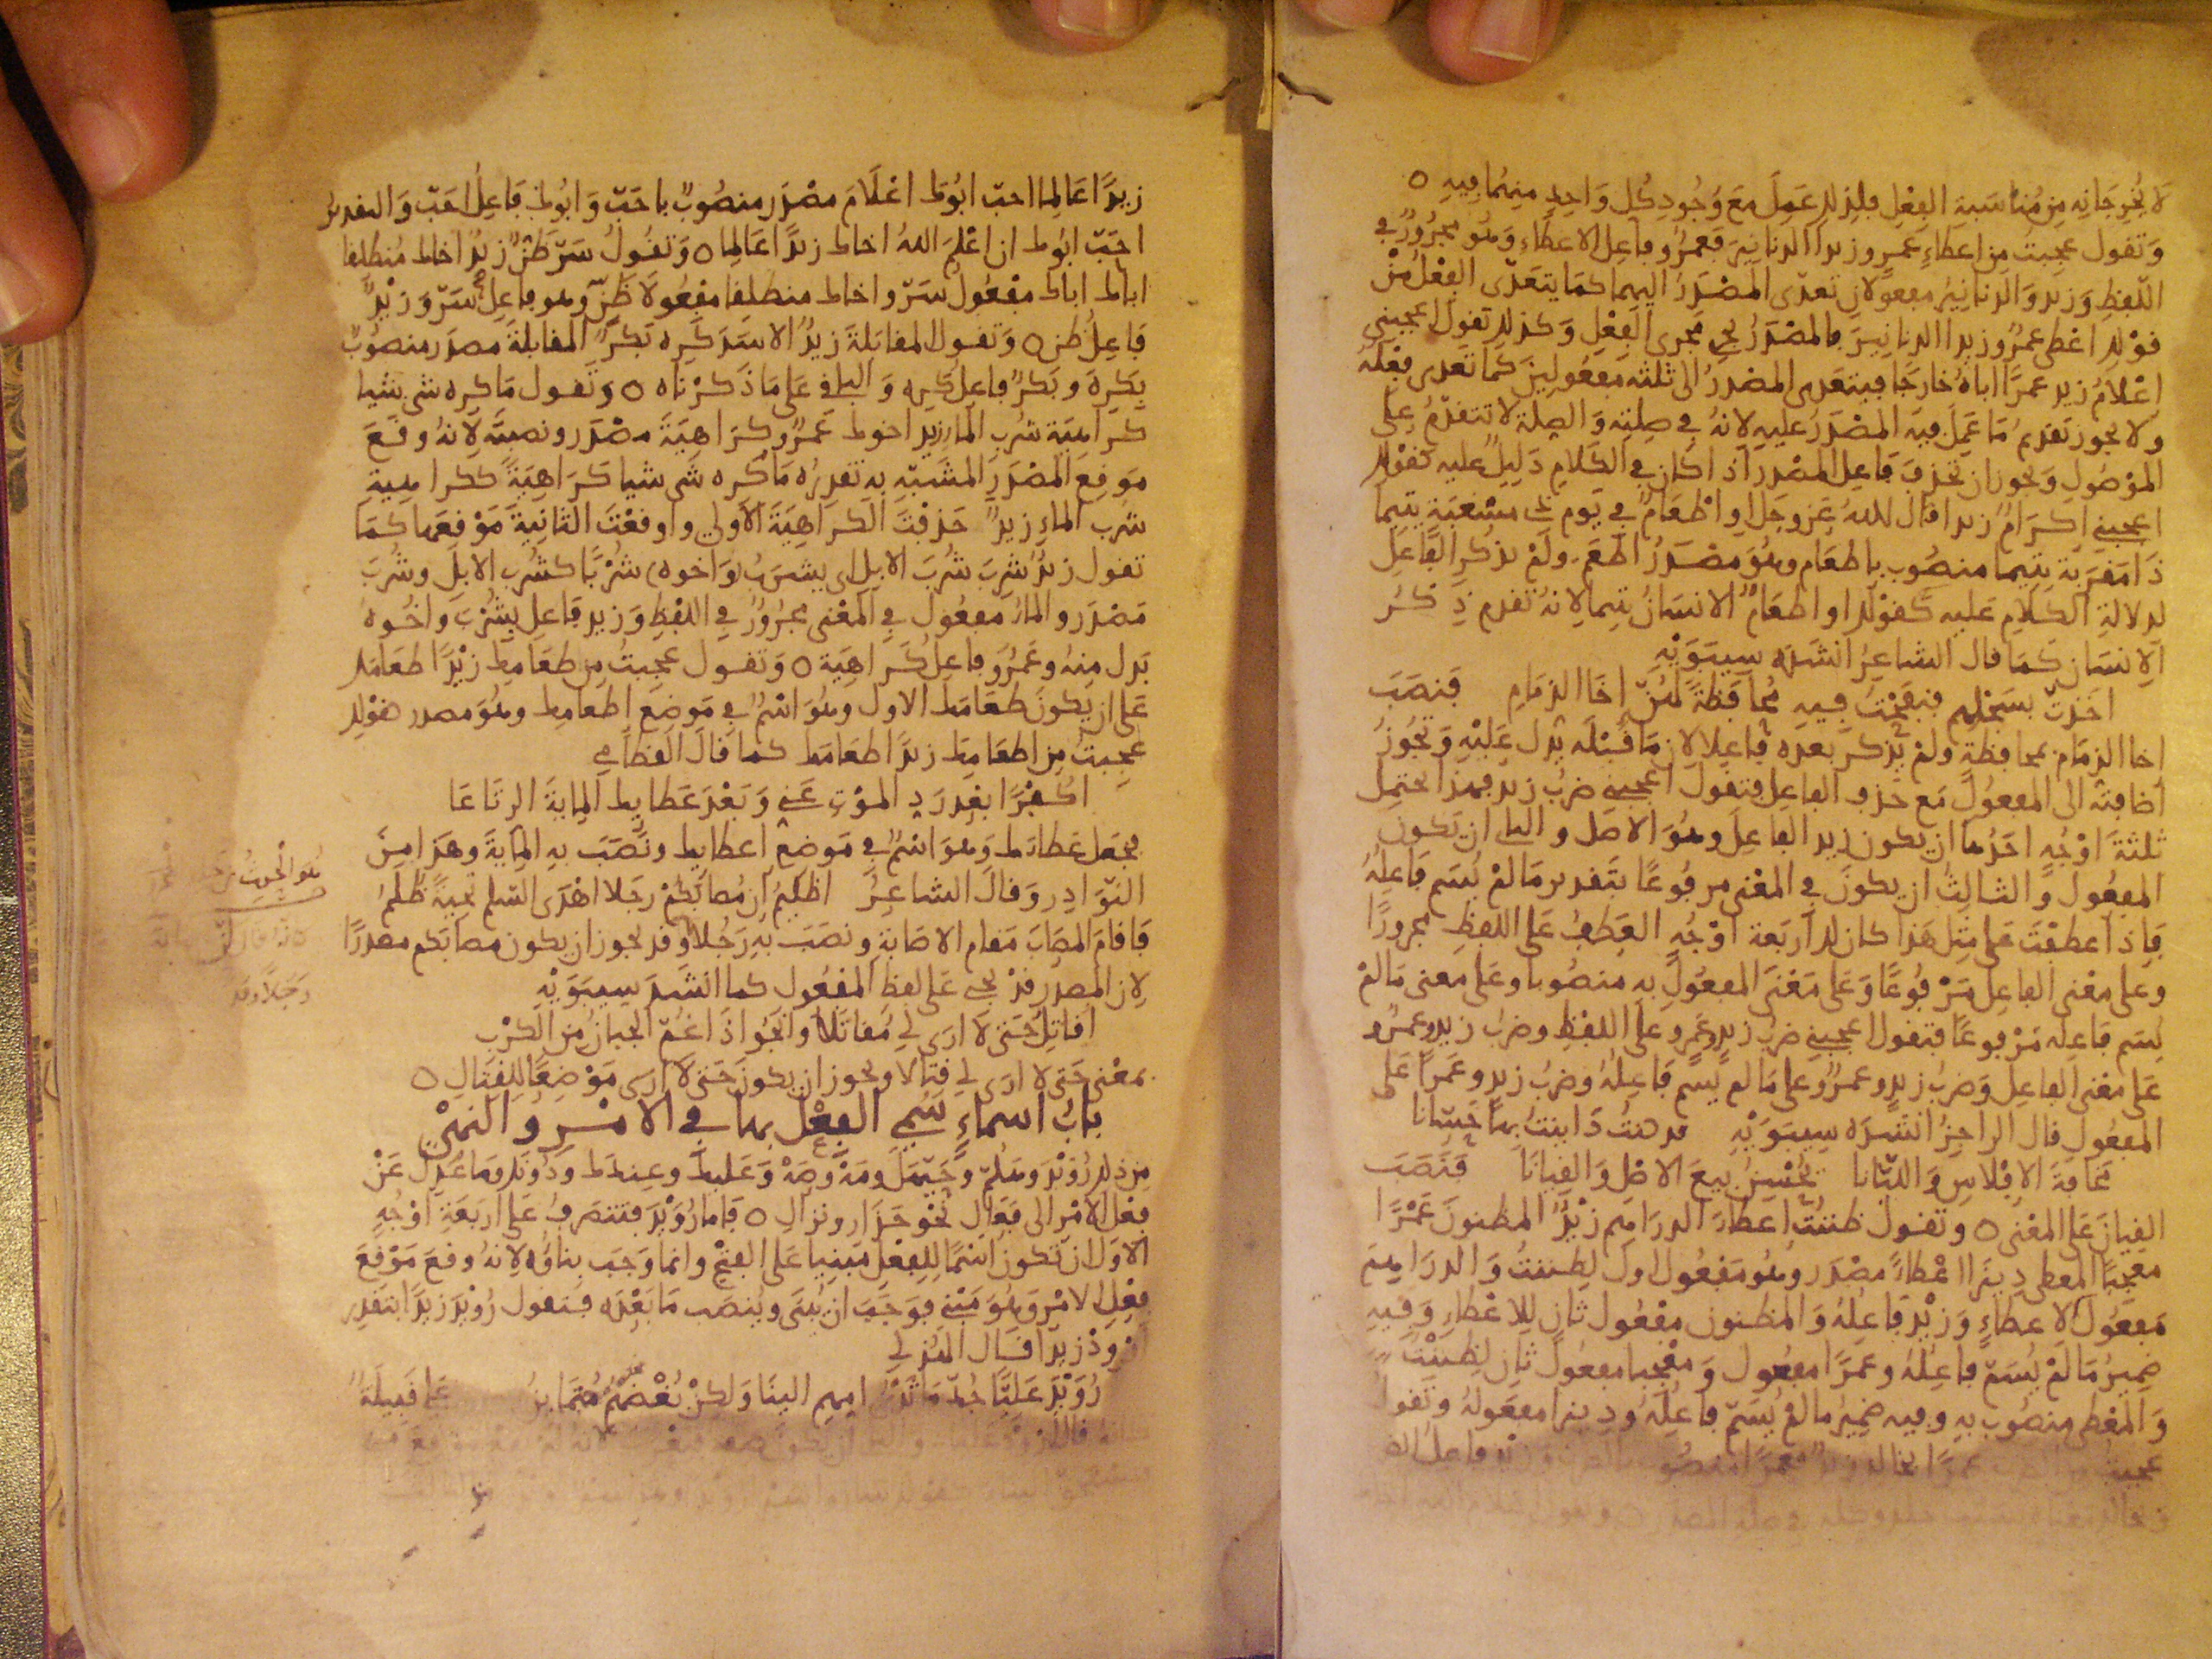 لا يُخرجانه من مُناسبة الفعل فلذلك عمل مع وجود كل واحد منهما فيه ٥
وتقول عجبت من اعطاء عمرو زيدا الدنانير فعمرو فاعل الاعطاء وهو مجرور في
اللفظ وزيد والدنانير مفعولان تعدى المصدر اليهما كما يتعدى الفعل من
قولك اعطى عمرو زيدا الدنانير فالمصدر يجري مجرى الفعل وكذلك تقول اعجبني
اعلام زيد عمرا اباه خارجا فيتعدى المصدر الى ثلثة مفعولين كما تعدى فعله
ولا يجوز تقديم ما عمل فيه المصدر عليه لانه في صلته والصلة لا تتقدم على
الموصول ويجوز ان تحذف فاعل المصدر اذا كان في الكلام دليل عليه كقولك
اعجبني اكرام زيدا قال الله عز وجل او اطعام في يوم ذي مسغبة يتيما
ذا مقربة يتيما منصوب باطعام وهو مصدر اطعم ولم يذكر الفاعل
لدلالة الكلام عليه كقولك او اطعام الانسان يتيما لانه تقدم ذكر
الانسان كما قال الشاعر انشده سيبويه
اخذت بسجلهم فنفحت فيه محافظة لهن اخا الذمام فنصب
اخا الذمام بمحافظة ولم يذكر بعده فاعلا لان ما قبله يدل عليه ويجوز
اضافته الى المفعول مع حذف الفاعل فتقول اعجبني ضرب زيد فهذا يحتمل
ثلثة اوجه احدها ان يكون زيد الفاعل وهو الاصل والثاني ان يكون
المفعول والثالث ان يكون في المعنى مرفوعا بتقدير ما لم يسم فاعله
فاذا عطفت على مثل هذا كان لك اربعة اوجه العطف على اللفظ مجرورا
وعلى معنى الفاعل مرفوعا وعلى معنى المفعول به منصوبا وعلى معنى ما لم
يسم فاعله مرفوعا فتقول اعجبني ضرب زيد وعمرو على اللفظ وضرب زيد وعمرو
على معنى الفاعل وضرب زيد وعمرو على ما لم يسم فاعله وضرب زيد وعمرا على
المفعول قال الراجز انشده سيبويه قد كنت داينت بها حسانا
مخافة الافلاس والليانا يحسن بيع الاصل والقيانا فنصب
القيان على المعنى ٥ وتقول ظننت اعطاء الدراهم زيد المظنون عمرا
معجبا المعطى دينرا اعطاء مصدر وهو مفعول اول لظننت والدراهم
مفعول الاعطاء وزيد فاعله والمظنون مفعول ثان للاعطاء وفيه
ضمير ما لم يسم فاعله وعمرا مفعول ومعجبا مفعول ثان لظننت
والمعطى منصوب به وفيه ضمير ما لم يسم فاعله ودينرا مفعوله وتقول
عجبت من الضرب عمرا خالد زيد فعمرا منصوب بالضرب وزيد فاعل
زيدا عالما احب ابوك اعلام مصدر منصوب باحب وابوك فاعل احب والتقدير
احب ابوك ان اعلم الله اخاك زيدا عالما ٥ وتقول سر ظن زيد اخاك منطلقا
اباك اباك مفعول سر واخاك منطلقا مفعولا ظن وهو فاعل سر وزيد
فاعل ظن ٥ وتقول المقابلة زيد الاسد كره بكر المقابلة مصدر منصوب
بكره وبكر فاعل كره والباقي على ما ذكرناه ٥ وتقول ما كره شي شيا
كراهية شرب الماء زيد اخوك عمرو كراهية مصدر ونصبته لانه وقع
موقع المصدر المشبه به تقديره ما كره شي شيا كراهية ككراهية
شرب الماء زيد حذفت الكراهية الاولى واوقعت الثانية موقعها كما
تقول زيد شرب شرب الابل اي يشرب (واخوه) شربا كشرب الابل وشرب
مصدر والماء مفعول في المعنى مجرور في اللفظ وزيد فاعل بشرب واخوه
بدل منه وعمرو فاعل كراهية ٥ وتقول عجبت من طعامك زيدا طعامك
على ان يكون طعامك الاول وهو اسم في موضع اطعامك وهو مصدر فقولك
عجبت من اطعامك زيدا طعامك كما قال القطامي
اكفرا بعد رد الموت عني وبعد عطايك الماية الرتاعا
فجعل عطاءك وهو اسم في موضع اعطايك ونصب به الماية وهذا من
النوادر وقال الشاعر اظليم ان مصابكم رجلا اهدى السلم تحية ظلم
فاقام المصاب مقام الاصابة ونصب به رجلا وقد يجوز ان يكون مصابكم مصدرا
لان المصدر قد يجي على لفظ المفعول كما انشد سيبويه
اقاتل حتى لا ارى لي مقاتلا وانجوا اذا غم الجبان من الكرب
بمعنى حتى لا ارى لي قتالا ويجوز ان يكون حتى لا ارى موضعا للقتال ٥
باب اسماء سمي الفعل بها في الامر والنهي
من ذلك رويد وهلم وحيهل ومه وصه وعليك وعندك ودونك وما عدل عن
فعل الامر الى فعال نحو حذار ونزال ٥ فاما رويد فتتصرف على اربعة اوجه
الاول ان تكون اسما للفعل مبنيا على الفتح وانما وجب بناؤه لانه وقع موقع
فعل الامر وهو مبني فوجب ان يبنى وينصب ما بعده فتقول رويد زيدا بتقدير
ارود زيدا قال الهذلي
رويد عليا جد ما ثدي امهم الينا ولكن بغضهم متماين على قبيلة
هو الحرث بن خالد
رجلا وقد